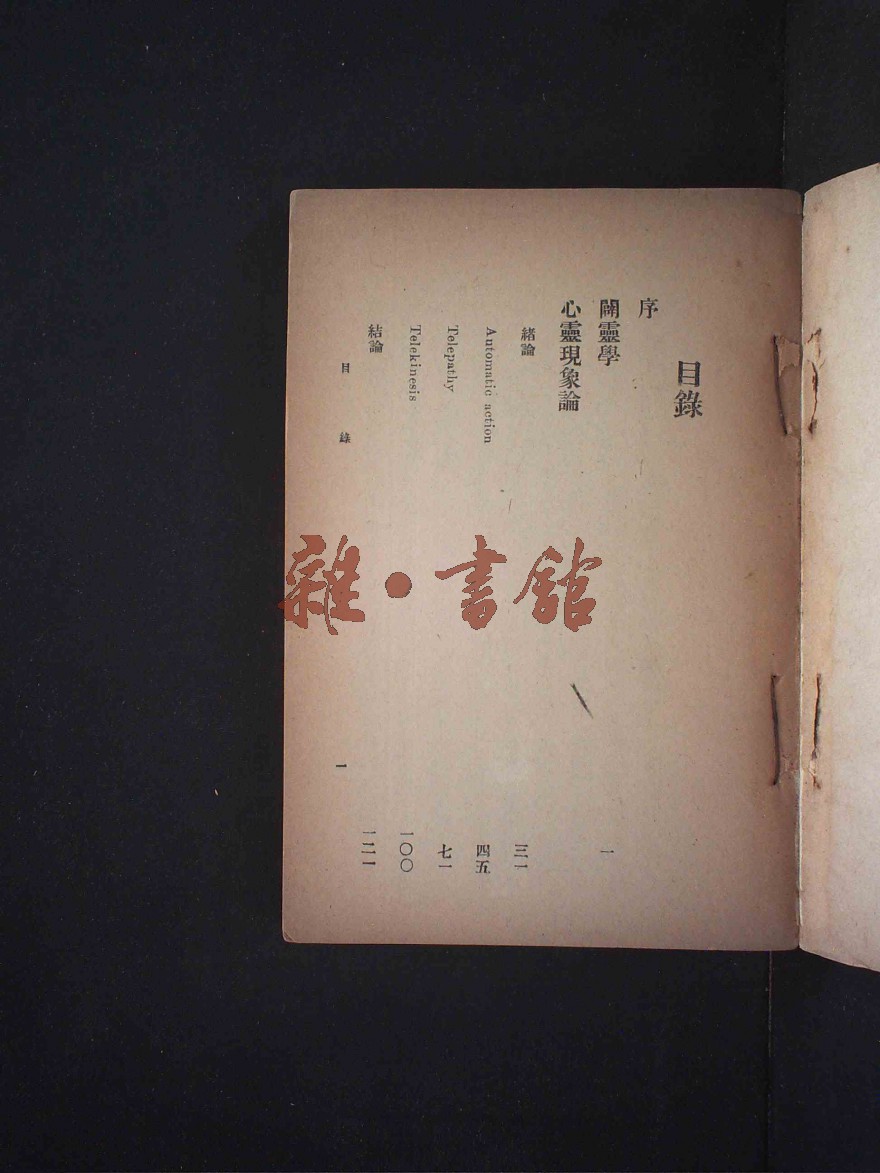 目錄
序
闢靈學 一
心靈現象論
緒論 三一
Automatic action 四五
Telepathy 七一
Telekinesis 一〇〇
結論 一二一
目錄 一
雜·書館